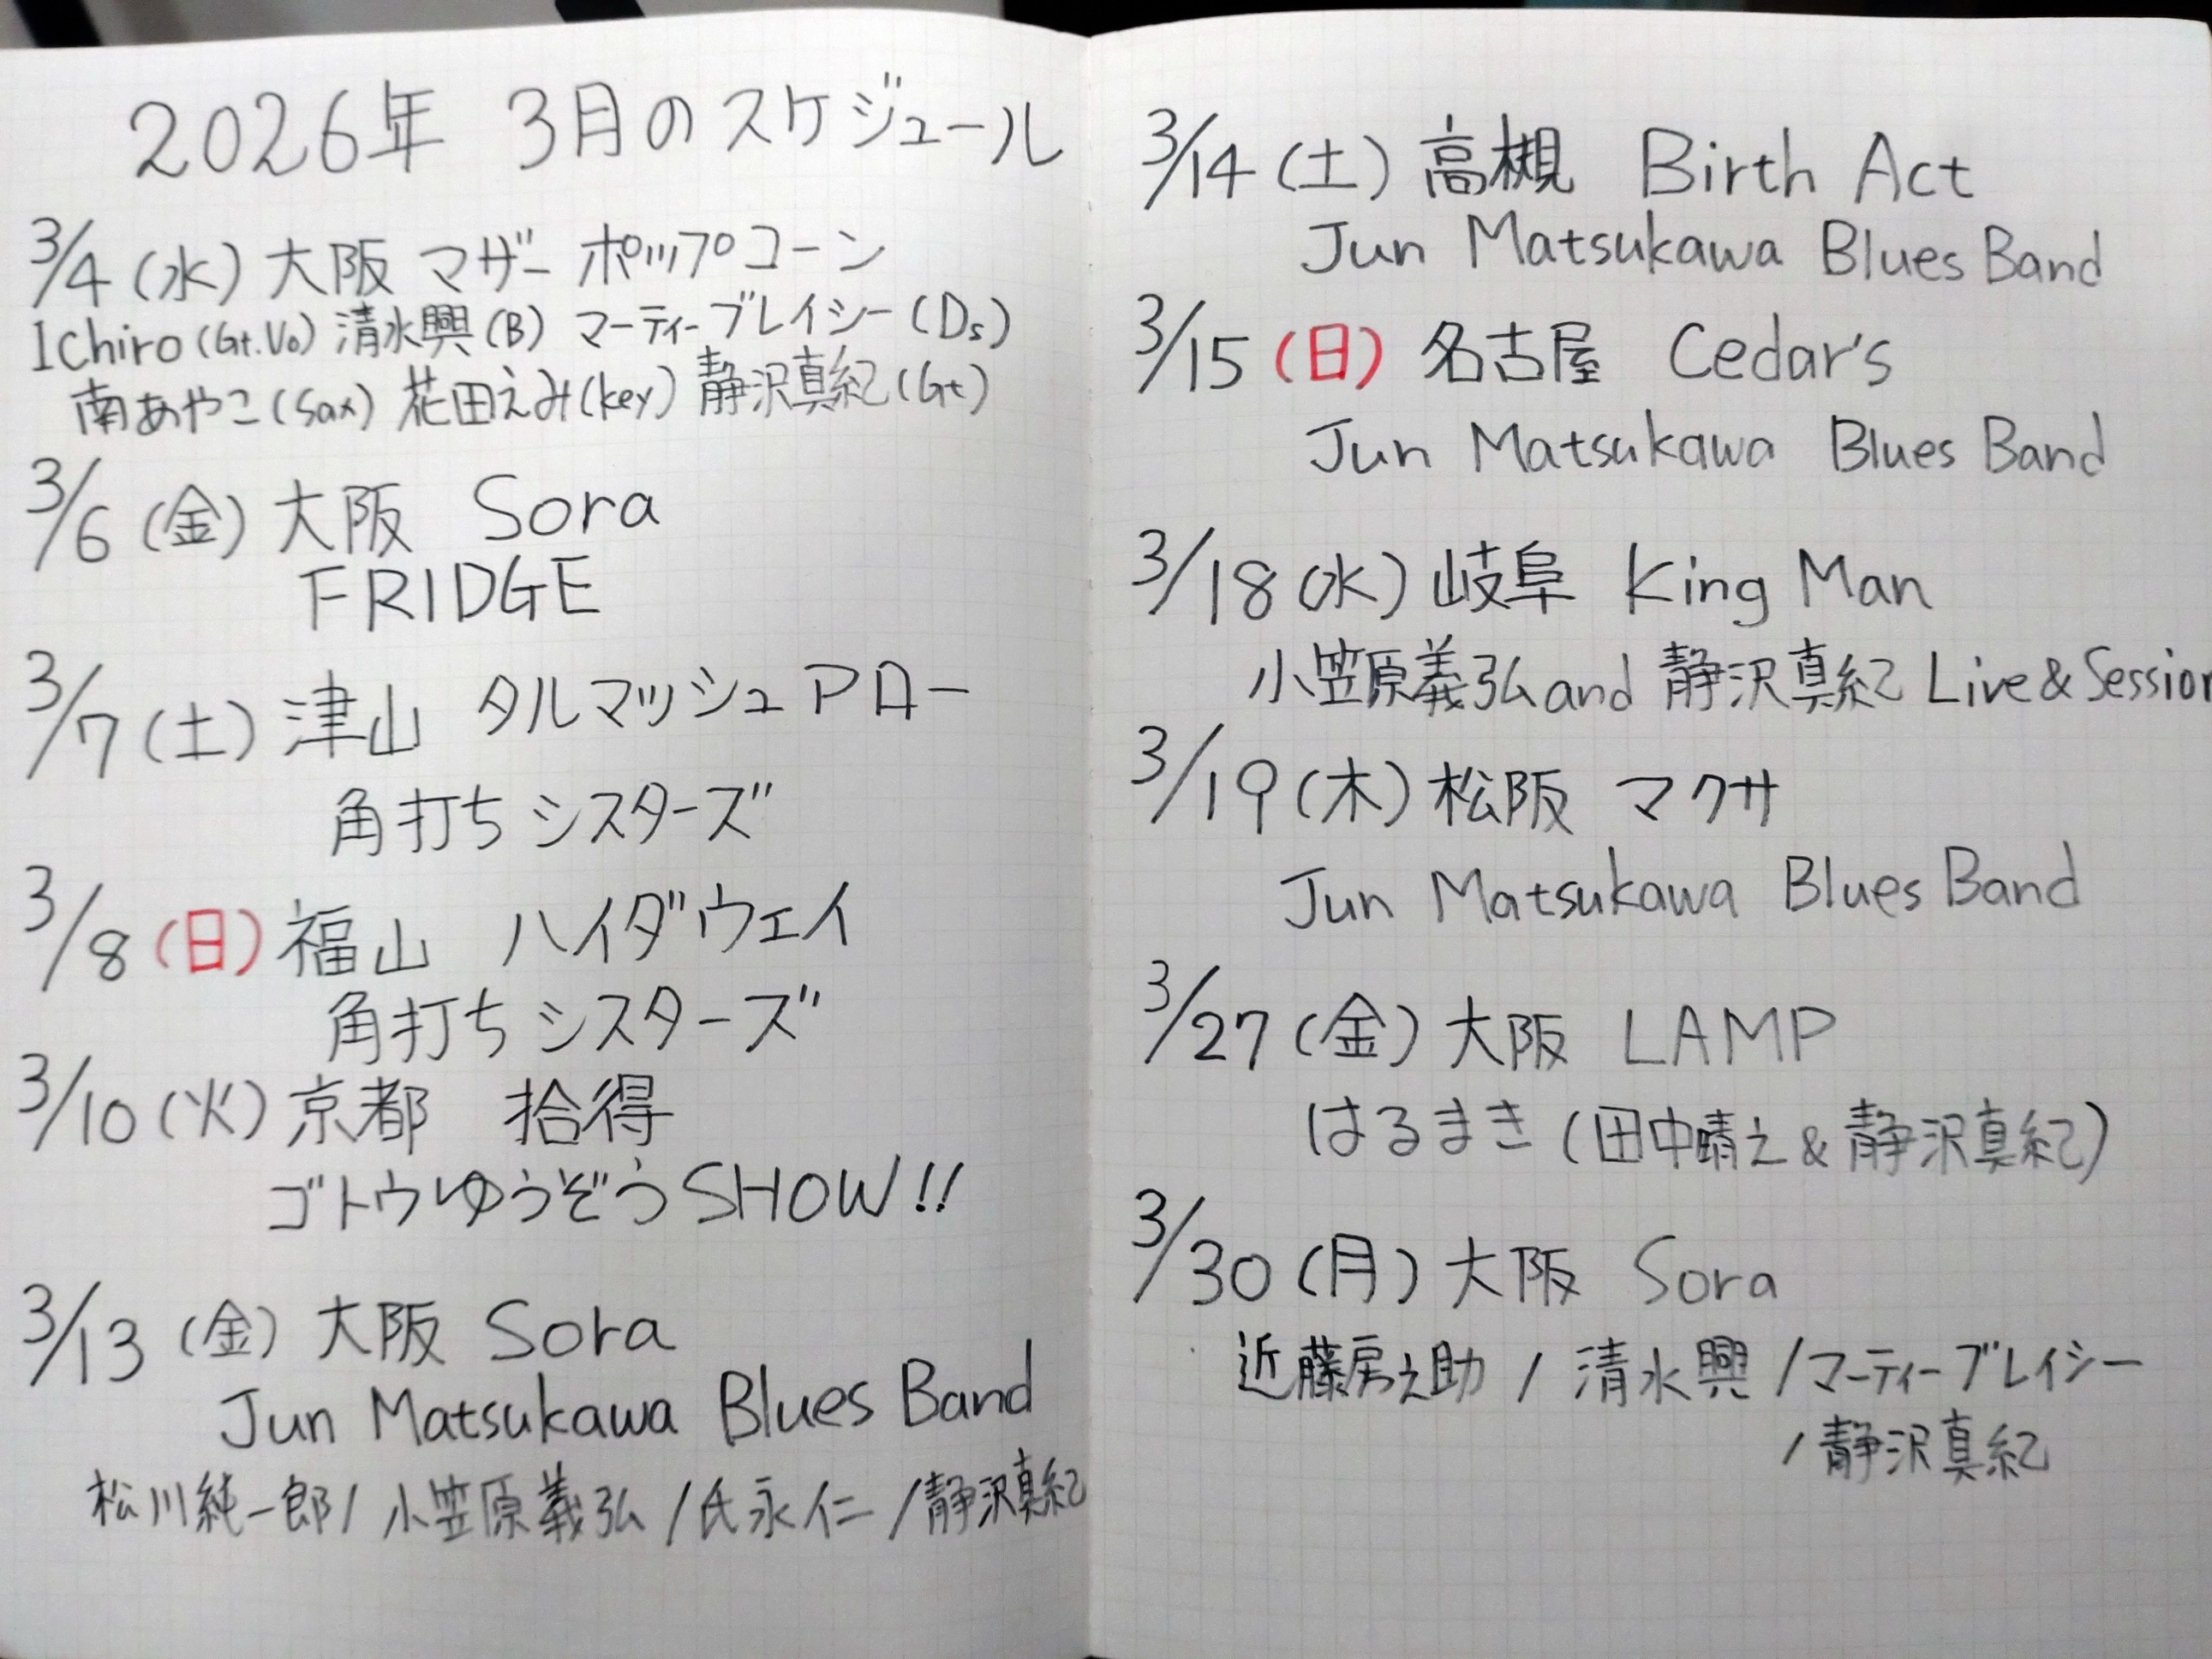 2026年 3月のスケジュール
3/4 (水) 大阪 マザー ポップコーン
Ichiro (Gt.Vo) 清水興 (B) マーティーブレイシー (Ds)
南あやこ (Sax) 花田えみ (key) 静沢真紀 (Gt)
3/6 (金) 大阪 Sora
FRIDGE
3/7 (土) 津山 タルマッシュアロー
角打ちシスターズ
3/8 (日) 福山 ハイダウェイ
角打ちシスターズ
3/10 (火) 京都 拾得
ゴトウゆうぞう SHOW!!
3/13 (金) 大阪 Sora
Jun Matsukawa Blues Band
松川純一郎 / 小笠原義弘 / 氏永仁 / 静沢真紀
3/14 (土) 高槻 Birth Act
Jun Matsukawa Blues Band
3/15 (日) 名古屋 Cedar's
Jun Matsukawa Blues Band
3/18 (水) 岐阜 King Man
小笠原義弘 and 静沢真紀 Live & Session
3/19 (木) 松阪 マクサ
Jun Matsukawa Blues Band
3/27 (金) 大阪 LAMP
はるまき (田中晴之 & 静沢真紀)
3/30 (月) 大阪 Sora
近藤房之助 / 清水興 / マーティーブレイシー
/ 静沢真紀